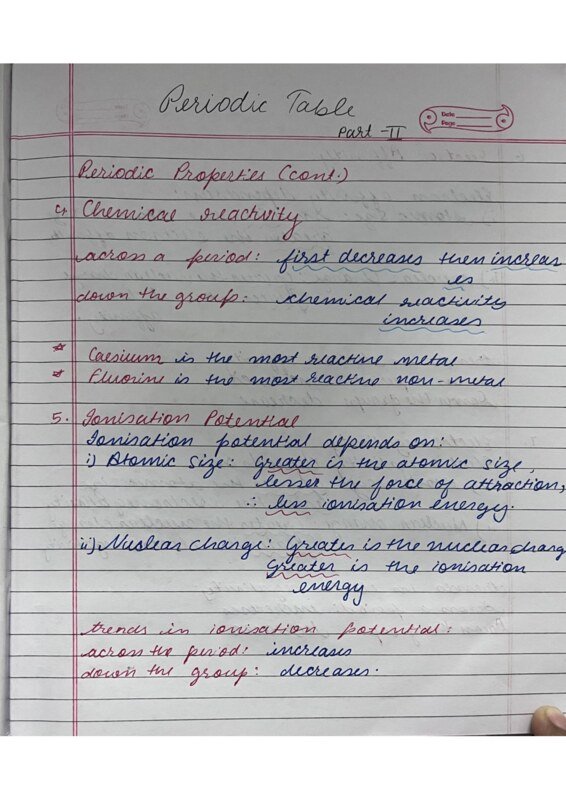 Periodic Table
Part -II
Date
Page
Periodic Properties (cont.)
4. Chemical reactivity:
across a period: first decreases then increas
es
down the groups: chemical reactivity
increases
* Caesium is the most reactive metal
* Fluorine is the most reactive non-metal
5. Ionisation Potential
Ionisation potential depends on:
i) Atomic size: Greater is the atomic size,
lesser the force of attraction,
∴ less ionisation energy.
ii) Nuclear charge: Greater is the nuclear charge
Greater is the ionisation
energy
trends in ionisation potential:
across the period: increases
down the group: decreases.